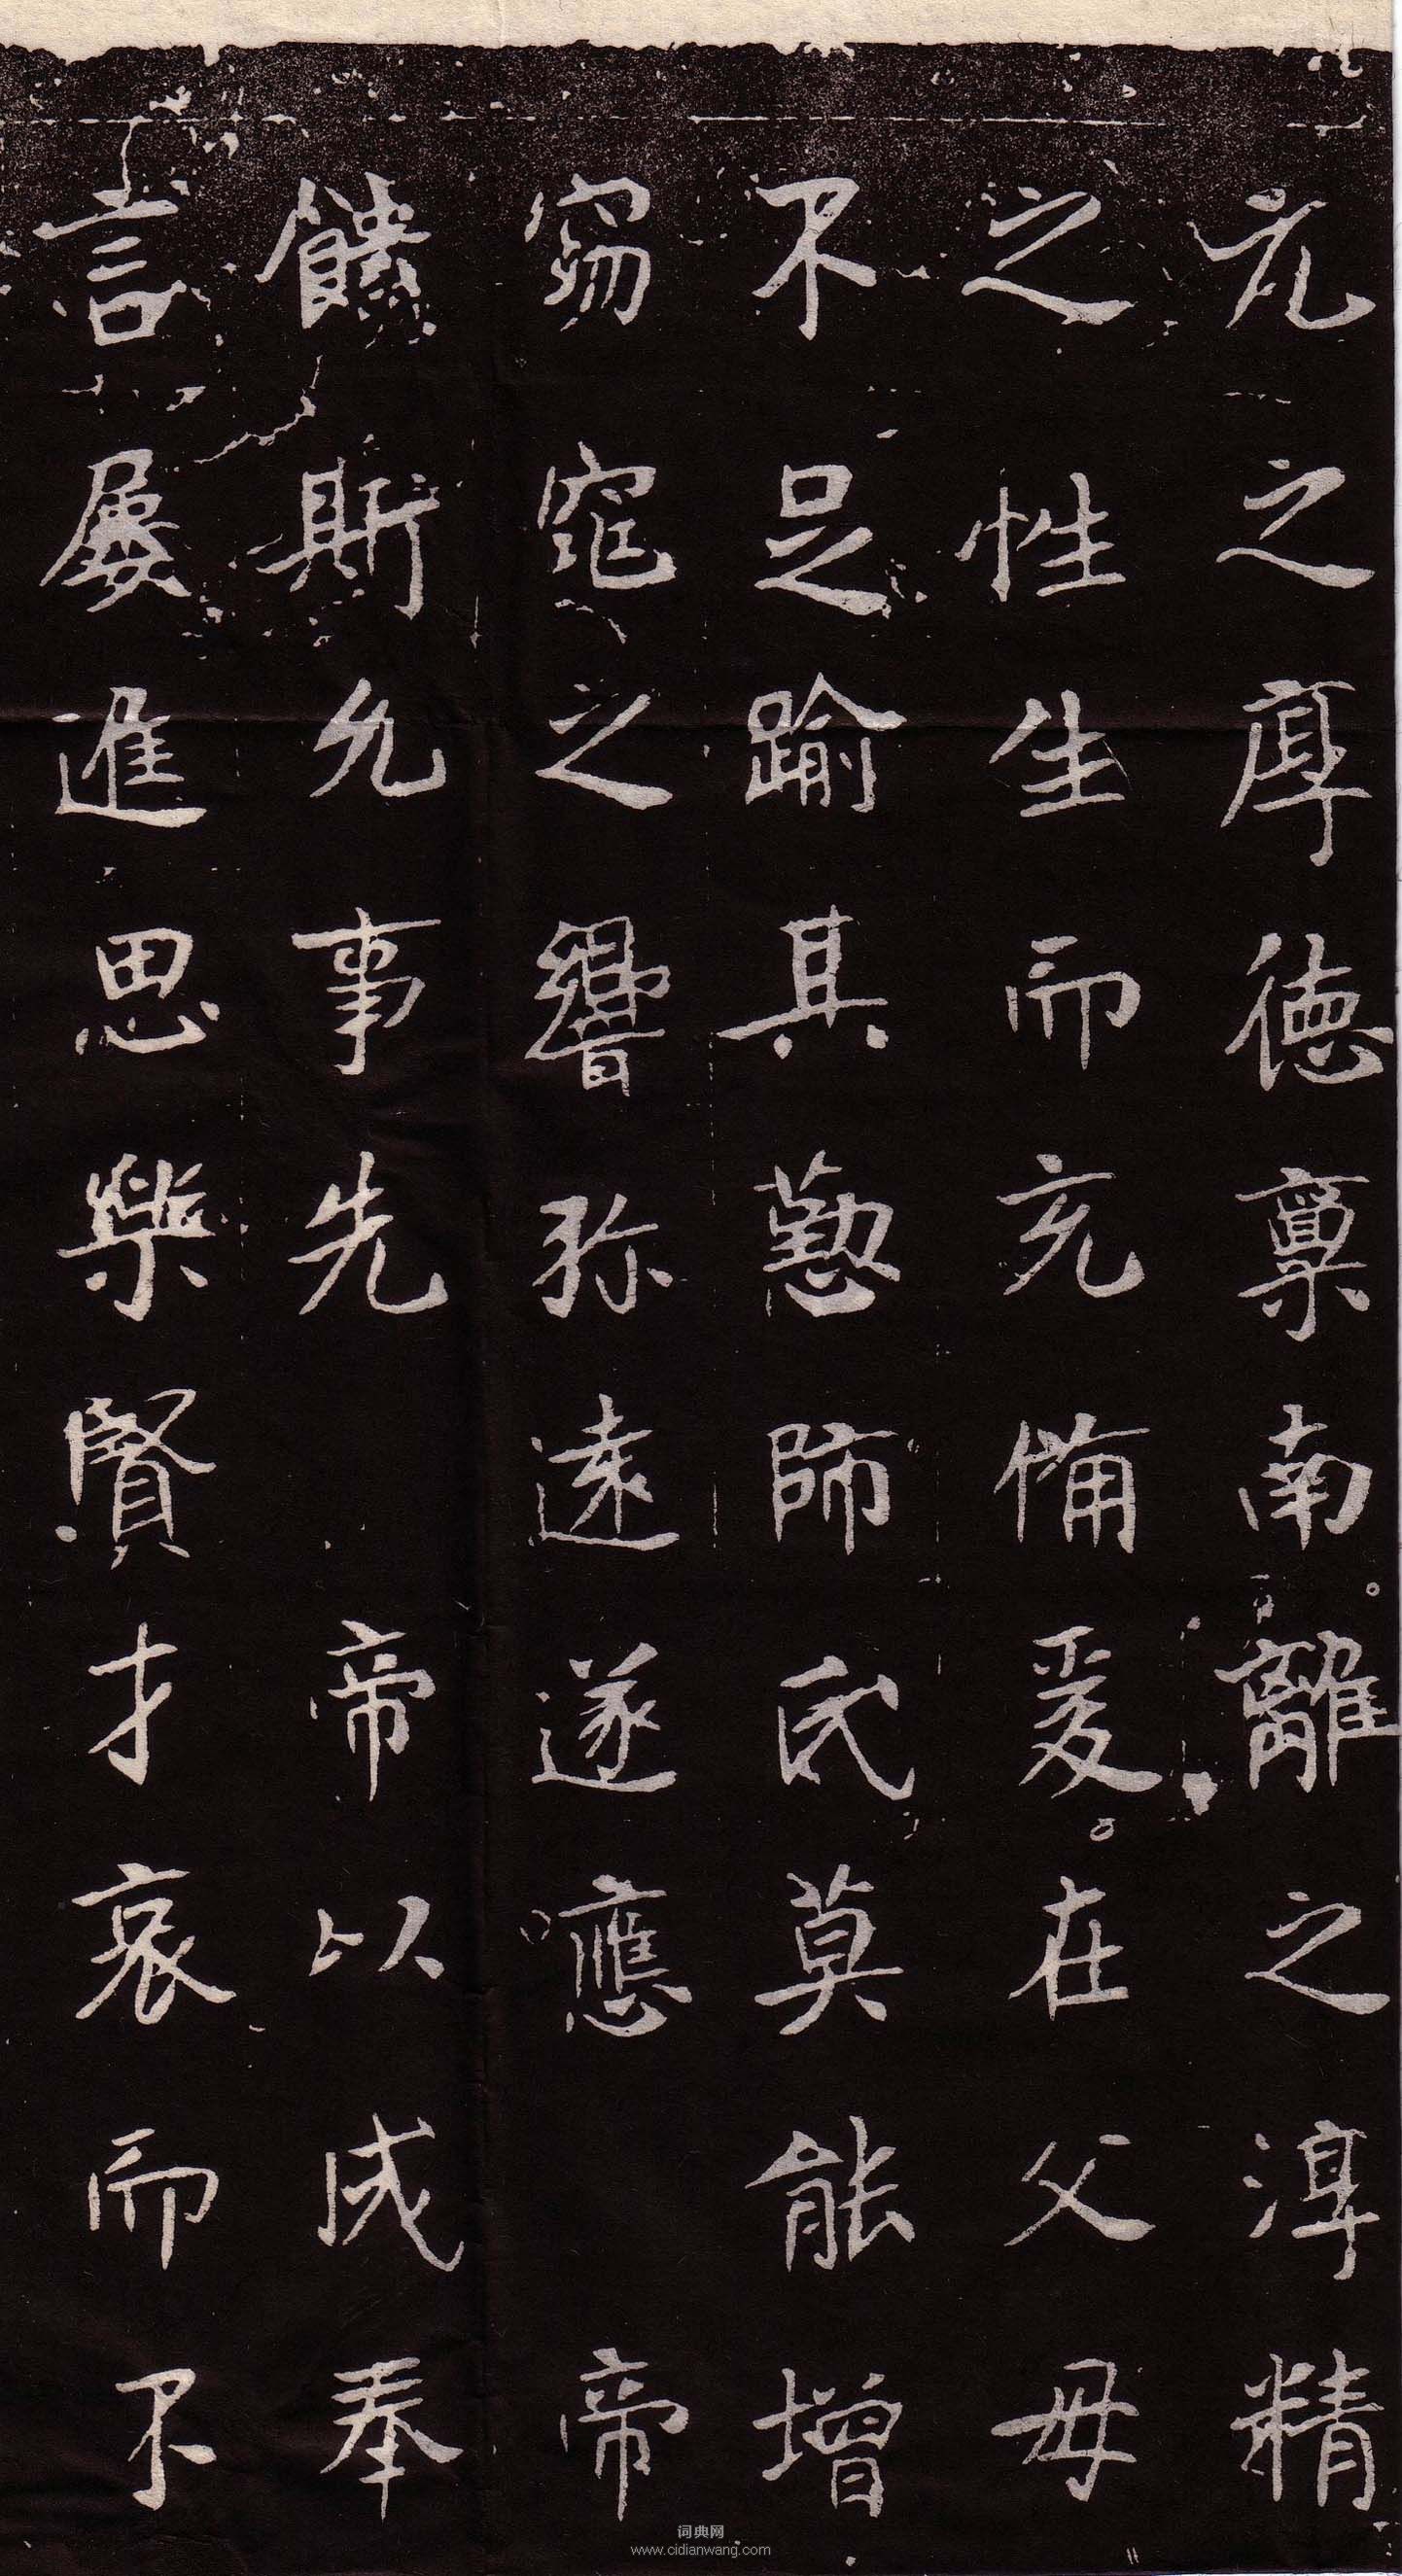 元之厚德稟南離之淳精
之性生而充備爰在父母
不足踰其懃師氏莫能增
窈窕之響弥遠遂應 帝
饋斯允事先 帝以成奉
言屢進思樂賢才哀而不
词典网
www.cidianwang.com